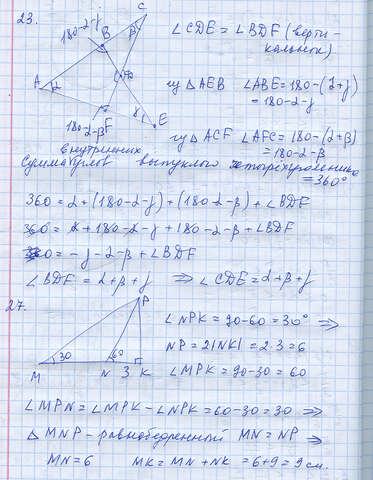 23.
C
180-α-γ
B
β
A
α
D
180-α-β
F
γ
E
∠CDE = ∠BDF (верти-
кальных)
из △AEB ∠ABE = 180-(α+γ)
= 180-α-γ
из △ACF ∠AFC = 180-(α+β)
= 180-α-β
внутренних
Сумма углов выпуклого четырёхугольника
= 360°
360 = α + (180-α-γ) + (180-α-β) + ∠BDF
360 = α + 180-α-γ + 180-α-β + ∠BDF
0 = -γ-α-β + ∠BDF
∠BDF = α+β+γ ⇒ ∠CDE = α+β+γ
27.
P
30
60
M N 3 K
∠NPK = 90-60 = 30° ⇒
NP = 2|NK| = 2·3 = 6
∠MPK = 90-30 = 60
∠MPN = ∠MPK - ∠NPK = 60-30 = 30 ⇒
△MNP - равнобедренный MN = NP ⇒
MN = 6 MK = MN + NK = 6+9 = 9 см.